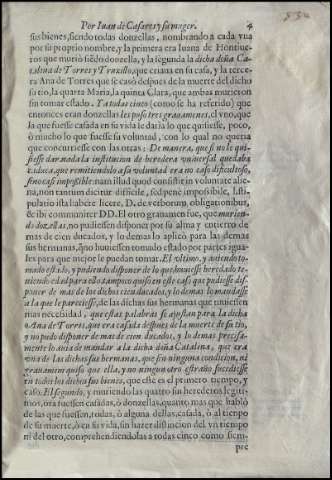 Por Iuan de Casares, y su muger. 4
sus bienes, siendo todas donzellas, nombrando a cada vna
por su proprio nombre, y la primera era Iuana de Hontiue-
ros que murió siẽdo donzella, y la segunda la dicha doña Ca-
talina de Torres y Truxillo, que criaua en su casa, y la terce-
ra Ana de Torres que se casò despues de la muerte del dicho
su tio, la quarta Maria, la quinta Clara, que ambas murieron
sin tomar estado. Y a todas cinco (como se ha referido) que
entonces eran donzellas les puso tres grauamenes, el vno, que
la que fuesse casada en su vida le daria lo que quisiesse, poco,
ò mucho lo que fuesse su voluntad, con lo qual no queria
que concurriesse con las otras: De manera, que si no le qui-
siesse dar nada la institucion de heredera vniuersal quedaua
caduca, que remitiendolo a su voluntad era no caso dificultoso,
sino casi impossible: nam illud quod consistit in voluntate alie-
na, non tantum dicitur difficile, sed penè impossibile, l. sti-
pulatio ista habere licere, D. de verborum obligationibus,
& ibi communiter DD. El otro grauamen fue, que murien-
do donzellas, no pudiessen disponer por su alma y entierro de
mas de cien ducados, y lo demas lo aplicò para las demas
sus hermanas, q̃ no huuiessen tomado estado por partes igua-
les para que mejor le puedan tomar. El vltimo, y auiendo to-
mado estado, y pudiendo disponer de lo que huuiesse heredado te-
niendo edad para ello tampoco quiso en este caso que pudiesse dis-
poner de mas de los dichos cien ducados, y lo demas lo mandasse
a la que le pareciesse, de las dichas sus hermanas que tuuiessen
mas necessidad, que estas palabras se ajustan para la dicha
Ana de Torres, que era casada despues de la muerte de su tio,
y no pudo disponer de mas de cien ducados, y lo demas precisa-
mente lo auia de mandar a la dicha doña Catalina, que era
vna de las dichas sus hermanas, que sin ninguna condicion, ni
grauamen quiso que ella, y no ningun otro estraño sucediesse
en todos los dichos sus bienes, que este es el primero tiempo, y
caso. El segundo, y muriendo las quatro sin herederos legiti-
mos, ora fuessen casadas, ò donzellas, quanto mas que hablò
de las que fuessen, todas, ò alguna dellas, casada, ò al tiempo
de su muerte, ò en su vida, sin hazer distincion del vn tiempo
ni del otro, comprehendiendolas a todas cinco como siem-
pre